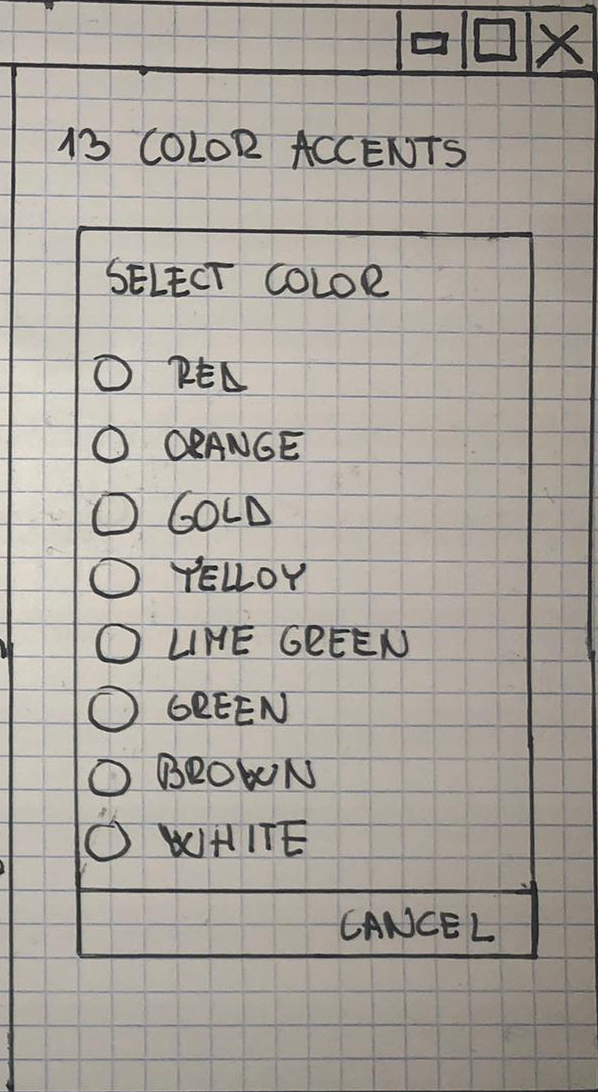 13 COLOR ACCENTS
SELECT COLOR
RED
ORANGE
GOLD
YELLOY
LIME GREEN
GREEN
BROWN
WHITE
CANCEL